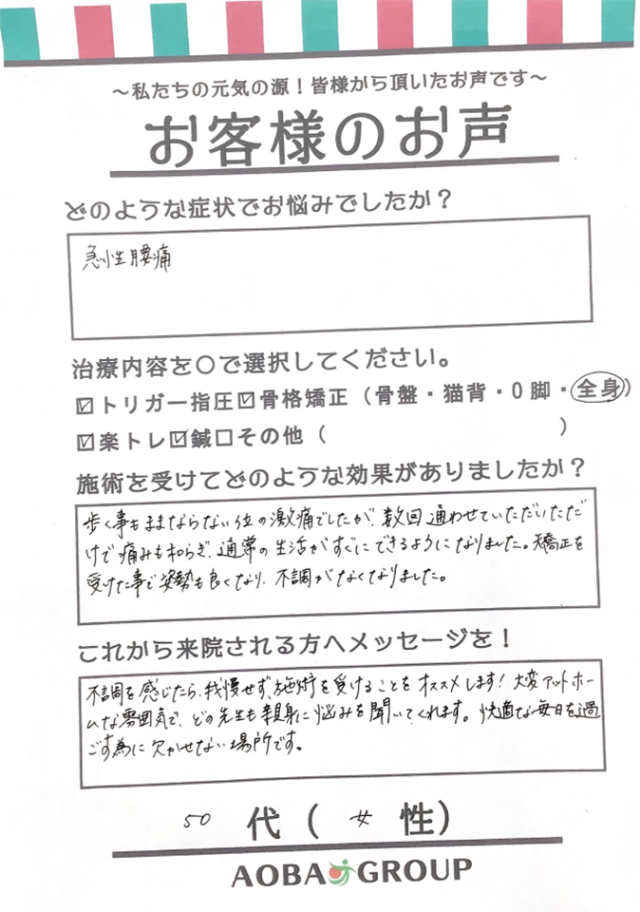 ～私たちの元気の源！皆様から頂いたお声です～
お客様のお声
どのような症状でお悩みでしたか？
急性腰痛
治療内容を○で選択してください。
☑トリガー指圧☑骨格矯正（骨盤・猫背・O脚・全身）
☑楽トレ☑鍼□その他（　　　　　　　　　）
施術を受けてどのような効果がありましたか？
歩く事もままならない位の激痛でしたが、数回通わせていただいただ
けで痛みも和らぎ、通常の生活がすぐにできるようになりました。矯正を
受けた事で姿勢も良くなり、不調がなくなりました。
これから来院される方へメッセージを！
不調を感じたら、我慢せず、施術を受けることをオススメします！大変アットホー
ムな雰囲気で、どの先生も親身に悩みを聞いてくれます。快適な毎日を過
ごす為に欠かせない場所です。
50 代（ 女 性）
AOBA GROUP